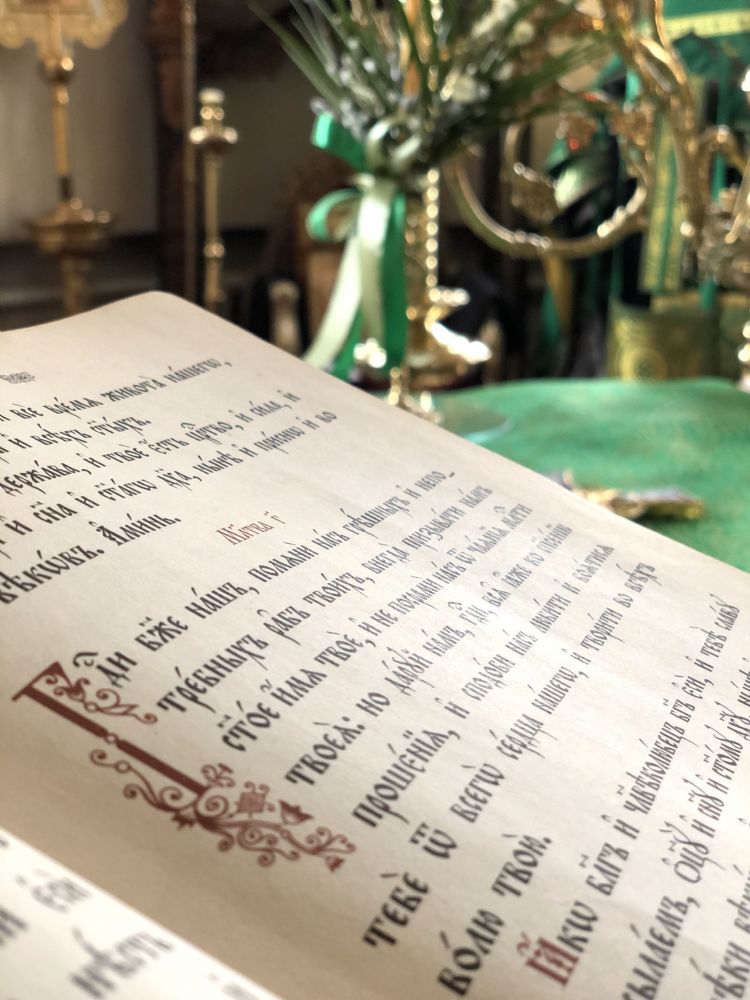 всѐ вре́мѧ живота̀ на́шегѡ,
и҆ всѣ́хъ ст҃ы́хъ.
держа́ва, и҆ твоѐ є҆́сть црⷭ҇тво, и҆ си́ла, и҆
и҆ сн҃а и҆ ст҃а́гѡ дх҃а, ны́нѣ и҆ при́снѡ и҆ во
вѣкѡ́въ. А҆ми́нь.
Мл҃тва г҃
Гдⷭ҇и бж҃е на́шъ, помѧнѝ на́съ грѣ́шныхъ и҆ непо-
тре́бныхъ ра̑бъ твои́хъ, внегда̀ призыва́ти на́мъ
ст҃о́е и҆́мѧ твоѐ, и҆ не посрамѝ на́съ ѿ ча́ѧнїѧ млⷭ҇ти
твоеѧ̀: но да́рꙋй на́мъ, гдⷭ҇и, всѧ̑ ꙗ҆̀же ко спⷭ҇нїю
проше́нїѧ, и҆ сподо́би на́съ люби́ти и҆ боѧ́тисѧ
тебє̀ ѿ всегѡ̀ се́рдца на́шегѡ, и҆ твори́ти во всѣ́хъ
во́лю твою̀.
Ꙗ҆́кѡ бл҃гъ и҆ чл҃вѣколю́бецъ бг҃ъ є҆сѝ, и҆ тебѣ̀ сла́вꙋ
возсыла́емъ, ѻ҆ц҃ꙋ̀ и҆ сн҃ꙋ и҆ ст҃о́мꙋ дх҃ꙋ
є҆сѝ